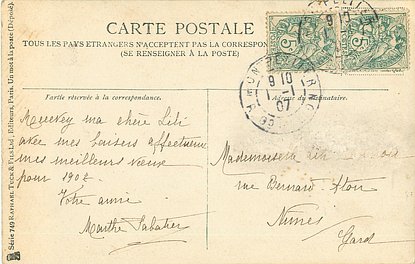 CARTE POSTALE
TOUS LES PAYS ETRANGERS N'ACCEPTENT PAS LA CORRESPON
(SE RENSEIGNER A LA POSTE)
Partie réservée à la correspondance.
Adresse du Destinataire.
ma chère
avec mes baisers affectueux
mes meilleurs vœux
pour 1907
Votre amie
Marthe Sabatier
Mademoiselle
rue Bernard Aton
Nimes
Gard
9 10
1 - 1
07
5
5
Série 749 RAPHAEL TUCK & FILS, Ltd., Editeurs, Paris. Un mot à la poste (Déposé).